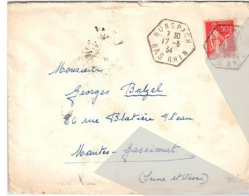 HUNSPACH
7 30
17-6
34
BAS RHIN
50c
Monsieur
Georges Balzel
86 rue
Mantes-Gassicourt
(Seine et Oise)